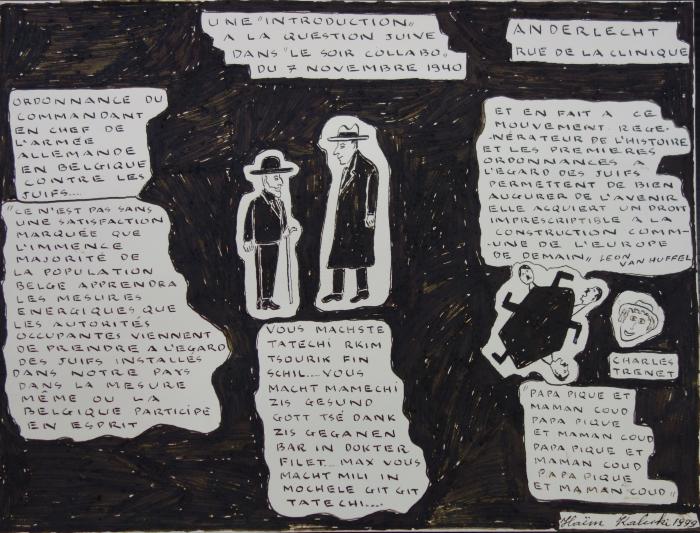 UNE "INTRODUCTION"
A LA QUESTION JUIVE
DANS "LE SOIR COLLABO"
DU 7 NOVEMBRE 1940
ANDERLECHT
RUE DE LA CLINIQUE
ORDONNANCE DU
COMMANDANT
EN CHEF DE
L'ARMÉE
ALLEMANDE
EN BELGIQUE
CONTRE LES
JUIFS....
"CE N'EST PAS SANS
UNE SATISFACTION
MARQUÉE QUE
L'IMMENCE
MAJORITÉ DE
LA POPULATION
BELGE APPRENDRA
LES MESURES
ENERGIQUES QUE
LES AUTORITÉS
OCCUPANTES VIENNENT
DE PRENDRE A L'EGARD
DES JUIFS INSTALLÉS
DANS NOTRE PAYS
DANS LA MESURE
MÊME OU LA
BELGIQUE PARTICIPE
EN ESPRIT
VOUS MACHSTE
TATECHI RKIM
TSOURIK FIN
SCHIL....VOUS
MACHT MAMECHI
ZIS GESUND
GOTT TSÉ DANK
ZIS GEGANEN
BAR IN DOKTER
FILET... MAX VOUS
MACHT MILI IN
MOCHELE GIT GIT
TATECHI....
ET EN FAIT A CE
MOUVEMENT REGE-
-NÉRATEUR DE L'HISTOIRE
ET LES PREMIERES
ORDONNANCES A
L'EGARD DES JUIFS
PERMETTENT DE BIEN
AUGURER DE L'AVENIR
ELLE ACQUIERT UN DROIT
IMPRESCRIPTIBLE A LA
CONSTRUCTION COMM-
-UNE DE L'EUROPE
DE DEMAIN" LEON
VAN HUFFEL
CHARLES
TRENET
"PAPA PIQUE ET
MAMAN COUD
PAPA PIQUE
ET MAMAN COUD
PAPA PIQUE ET
MAMAN COUD
PAPA PIQUE
ET MAMAN COUD"
Haïm Kaliski 1999